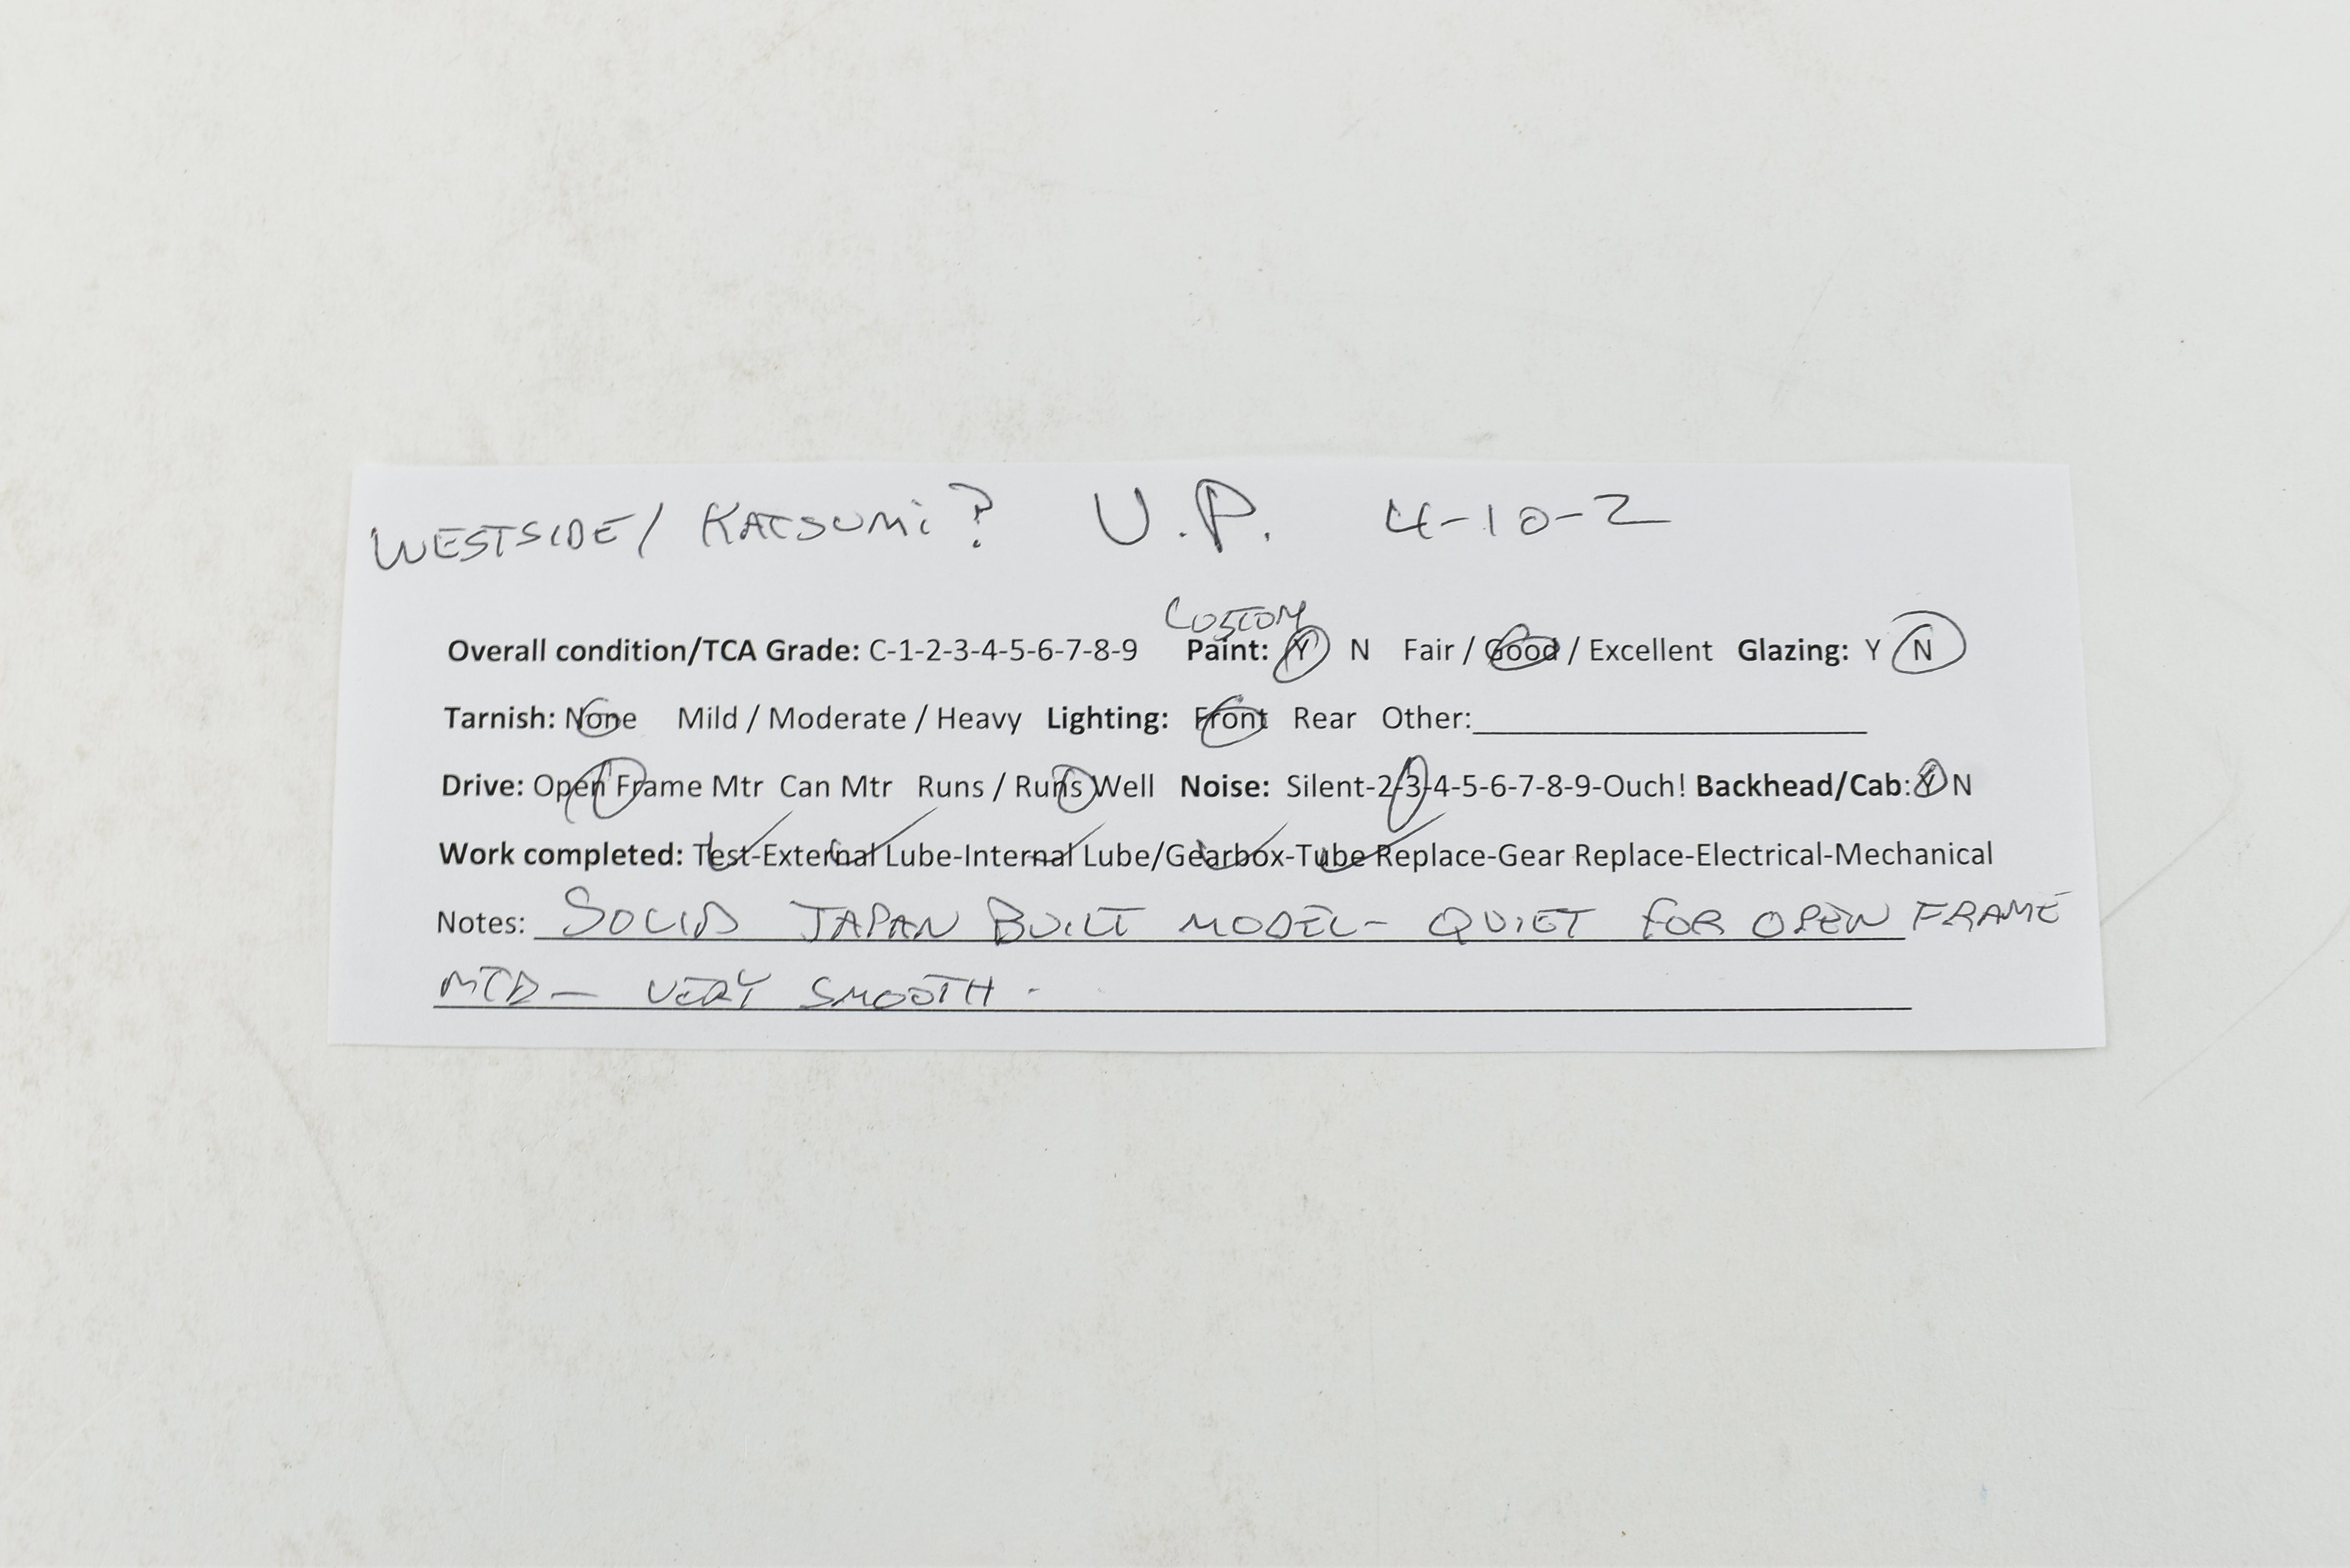 WESTSIDE/ KATSUMi? U.P. 4-10-2
CUSTOM
Overall condition/TCA Grade: C-1-2-3-4-5-6-7-8-9 Paint: Y N Fair / Good / Excellent Glazing: Y N
Tarnish: None Mild / Moderate / Heavy Lighting: Front Rear Other:
Drive: Open Frame Mtr Can Mtr Runs / Runs Well Noise: Silent-2-3-4-5-6-7-8-9-Ouch! Backhead/Cab: Y N
Work completed: Test-External Lube-Internal Lube/Gearbox-Tube Replace-Gear Replace-Electrical-Mechanical
Notes: SOLID JAPAN BUILT MODEL- QUIET FOR OPEN FRAME
MTR- VERY SMOOTH.